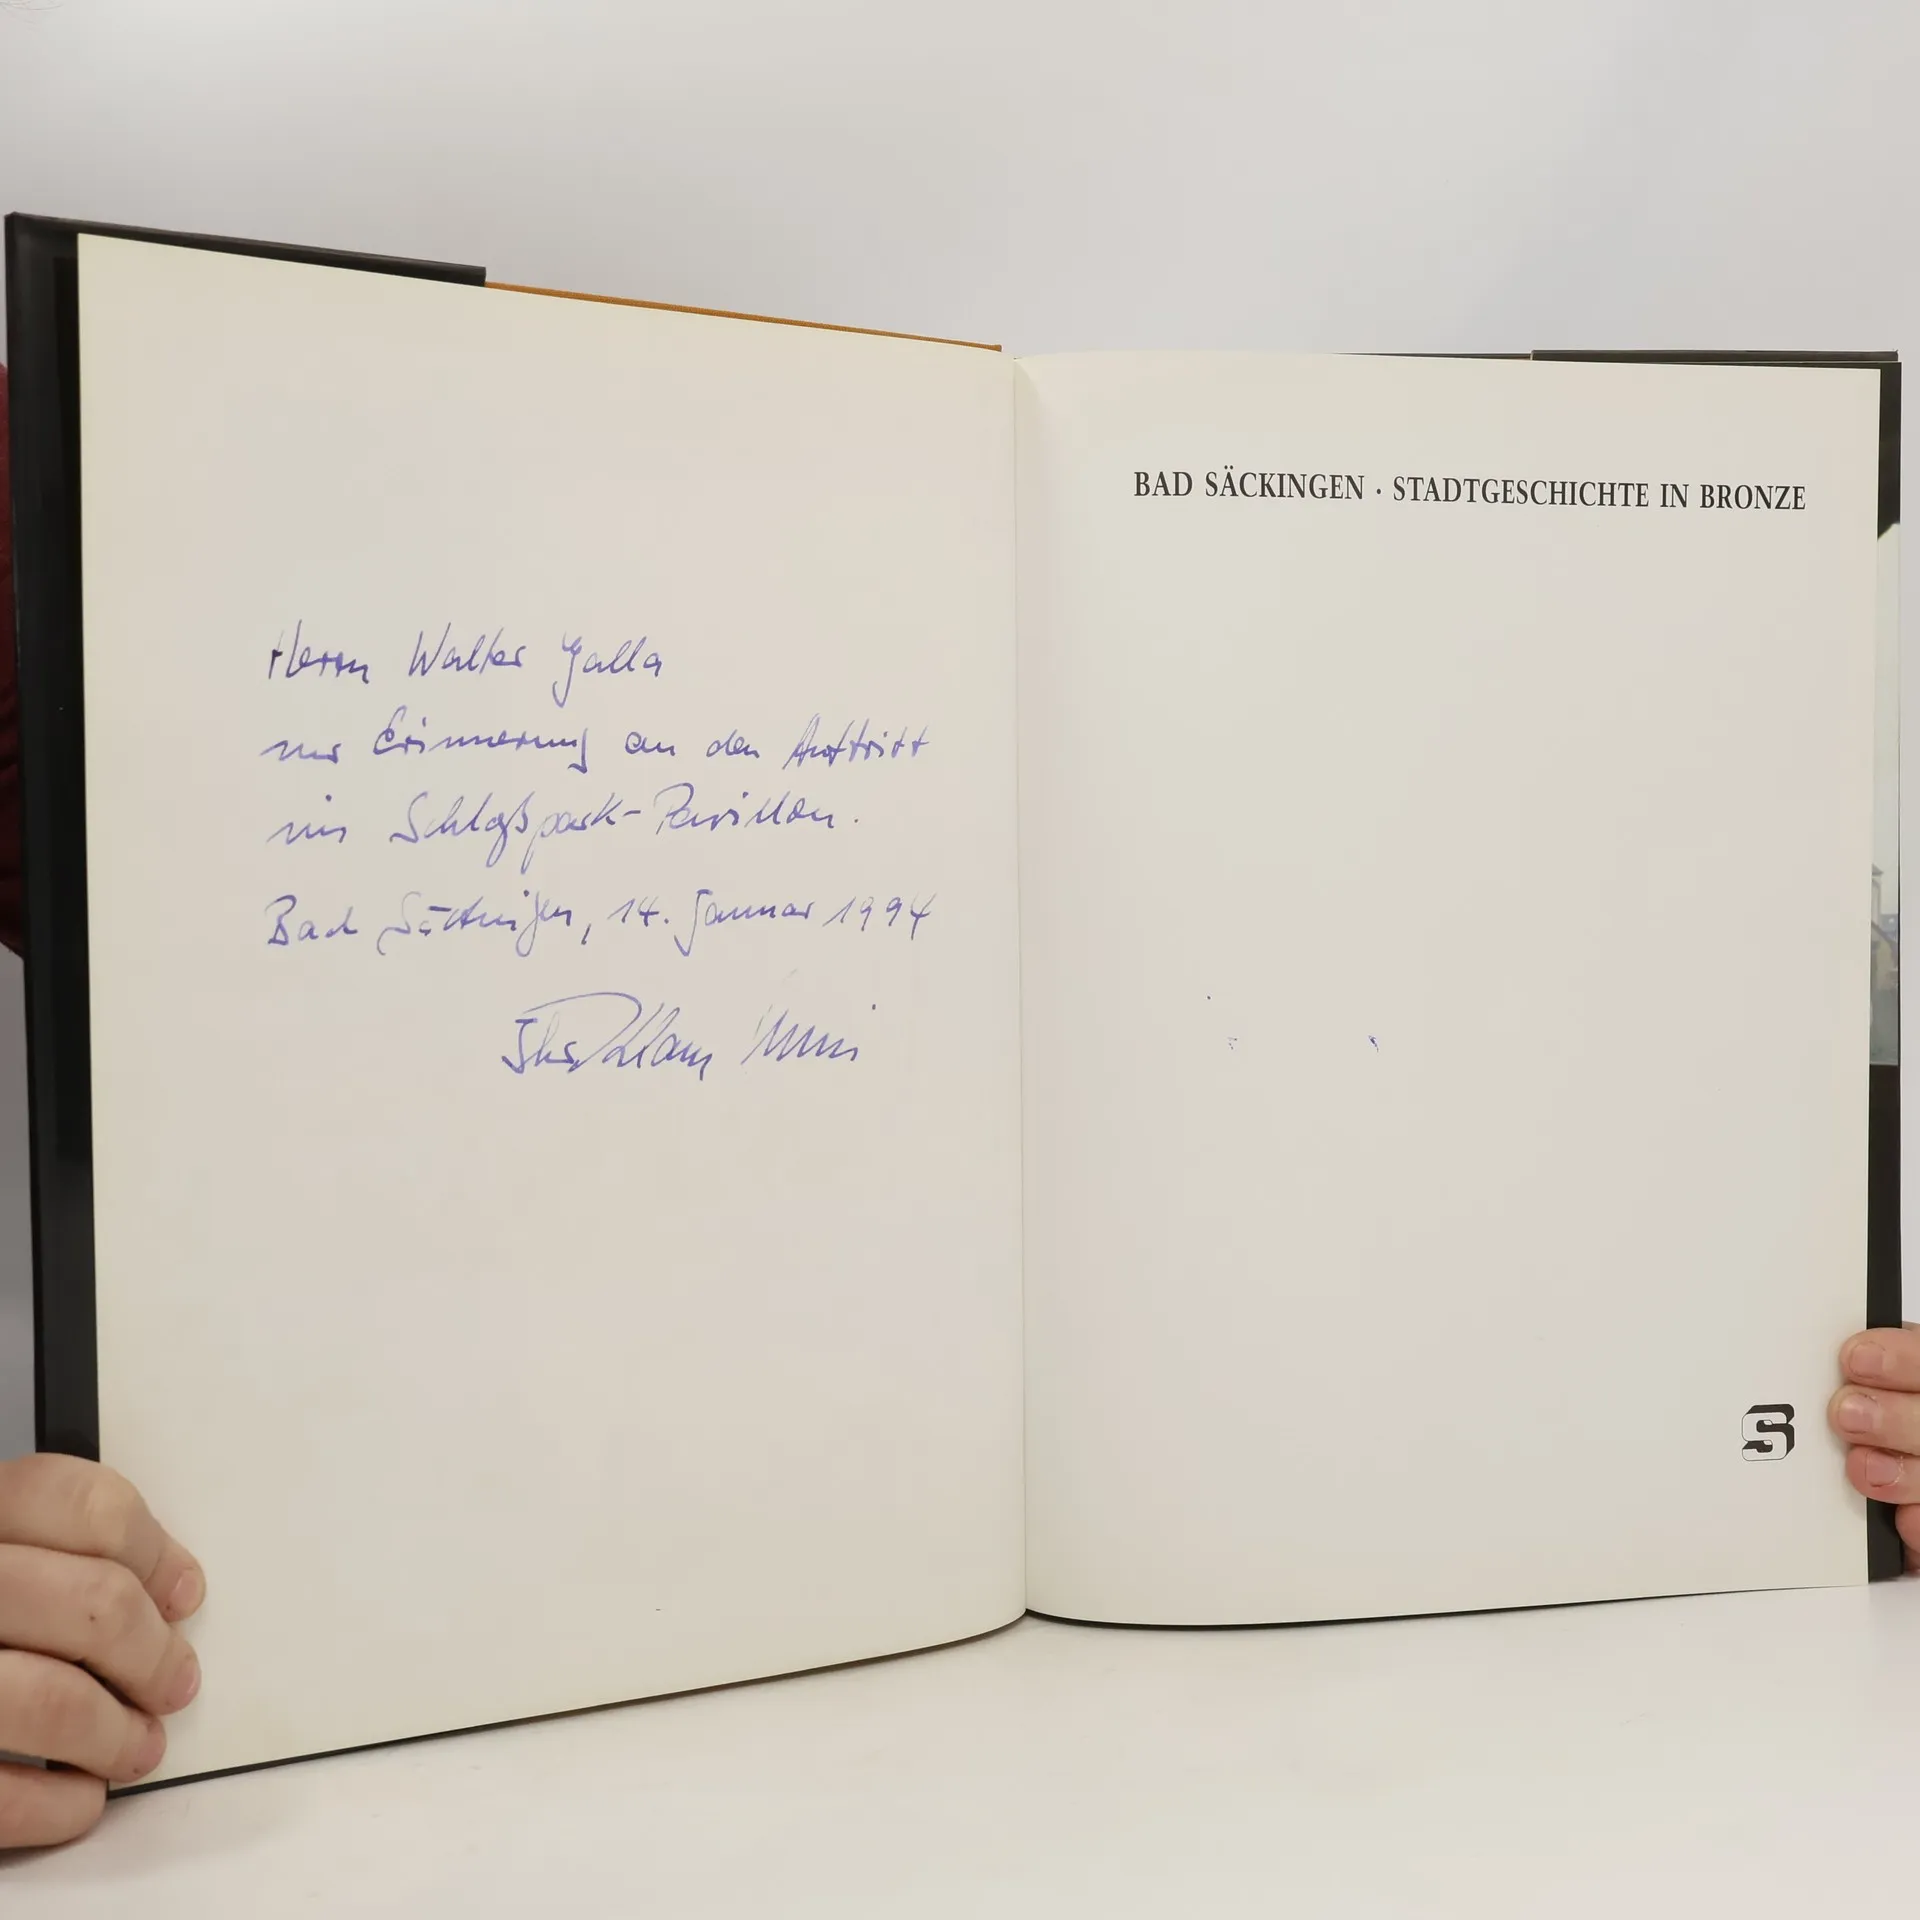 Herrn Walter Galla
zur Erinnerung an den Auftritt
im Schloßpark-Pavillon.
Bad Säckingen, 14. Januar 1994
Ihr Klaus
BAD SÄCKINGEN · STADTGESCHICHTE IN BRONZE
S